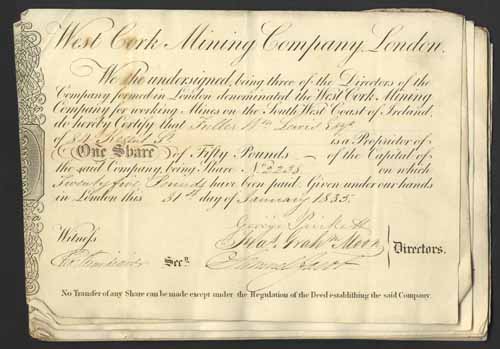 West Cork Mining Company, London.
We the undersigned, being three of the Directors of the
Company formed in London denominated the West Cork Mining
Company for working Mines on the South West Coast of Ireland,
do hereby Certify that Fuller Wm Lewis Esqr
of is a Proprietor of
One Share of Fifty Pounds of the Capital of
the said Company, being Share No 2238 on which
Twenty five Pounds have been paid. Given under our hands
in London this 31st day of January 1835.
George
Witness
Directors.
Secy.
No Transfer of any Share can be made except under the Regulation of the Deed establishing the said Company.